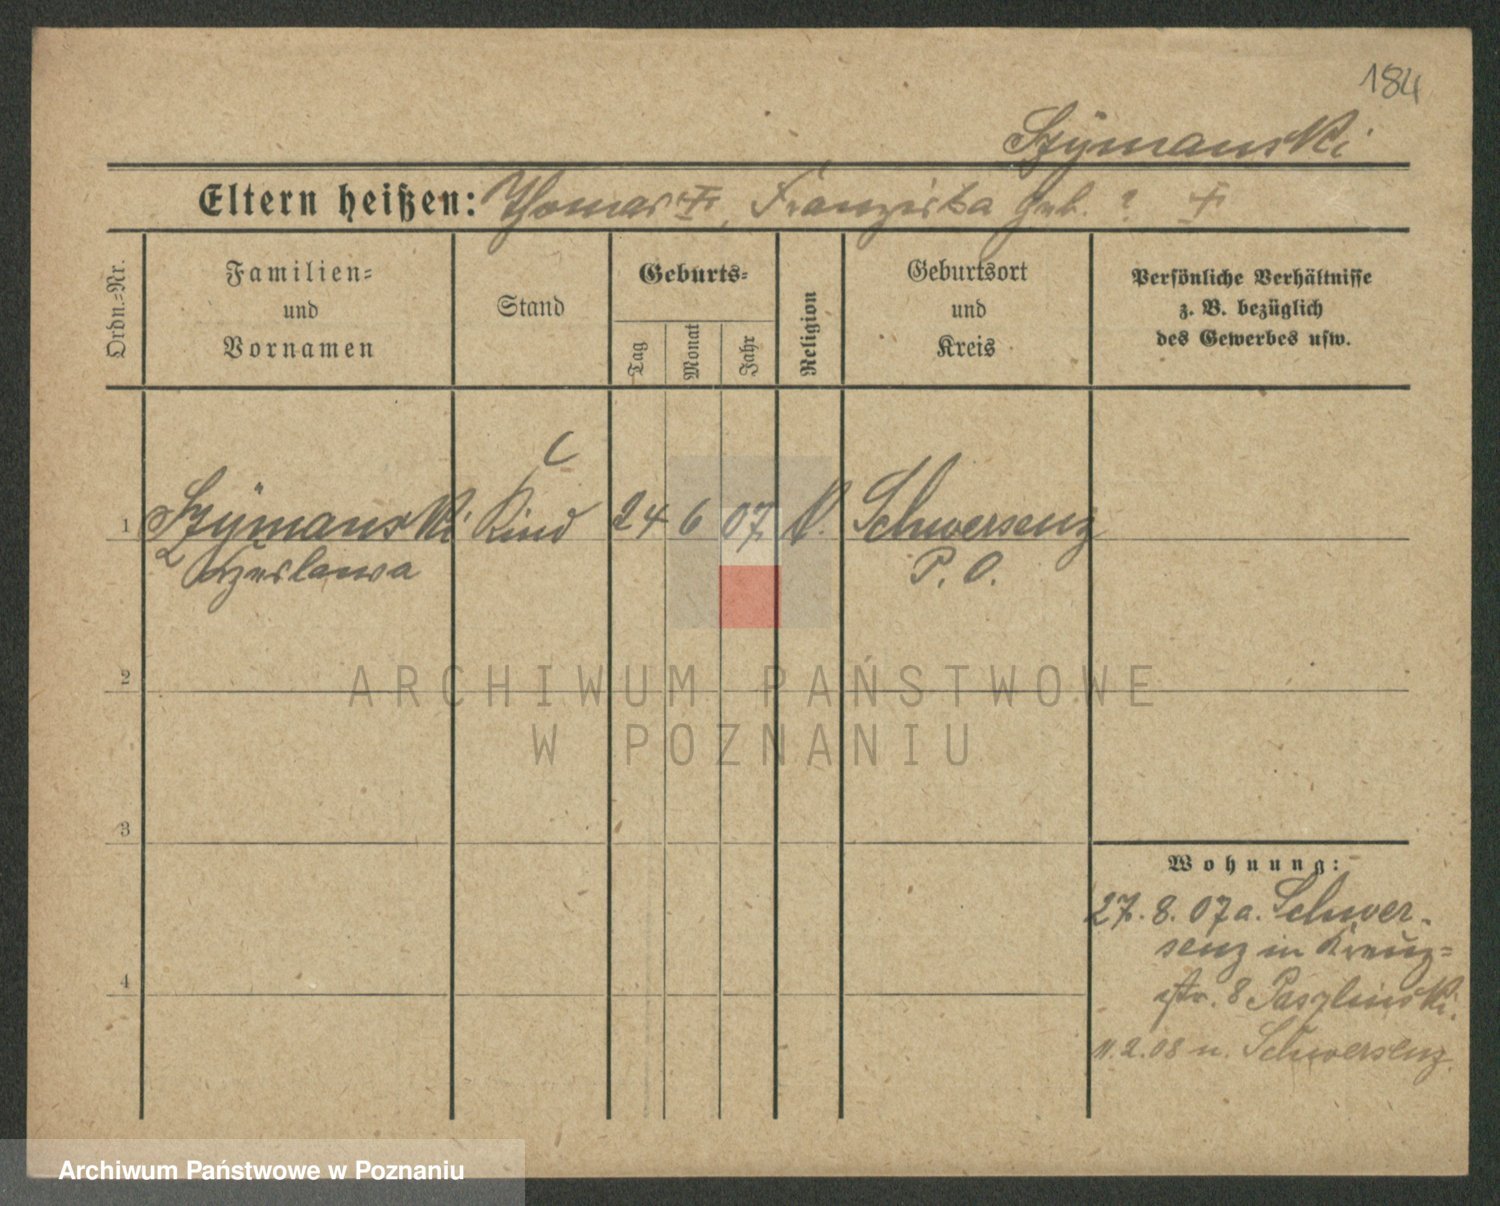 184
Szÿmanski
Eltern heißen: Thomas †, Franziska geb. ? †
Ordn.=Nr.
Familien=
und
Vornamen
Stand
Geburts=
Tag
Monat
Jahr
Religion
Geburtsort
und
Kreis
Persönliche Verhältnisse
z. B. bezüglich
des Gewerbes usw.
1 Szÿmanski Kind 24 6 07. k. Schwersenz
Czeslawa P. O.
2
ARCHIWUM PAŃSTWOWE
W POZNANIU
3
Wohnung:
27. 8. 07 a. Schwer-
senz in Kreuz=
4
str. 8 Paszlinski.
11. 2. 08 n. Schwersenz.
Archiwum Państwowe w Poznaniu